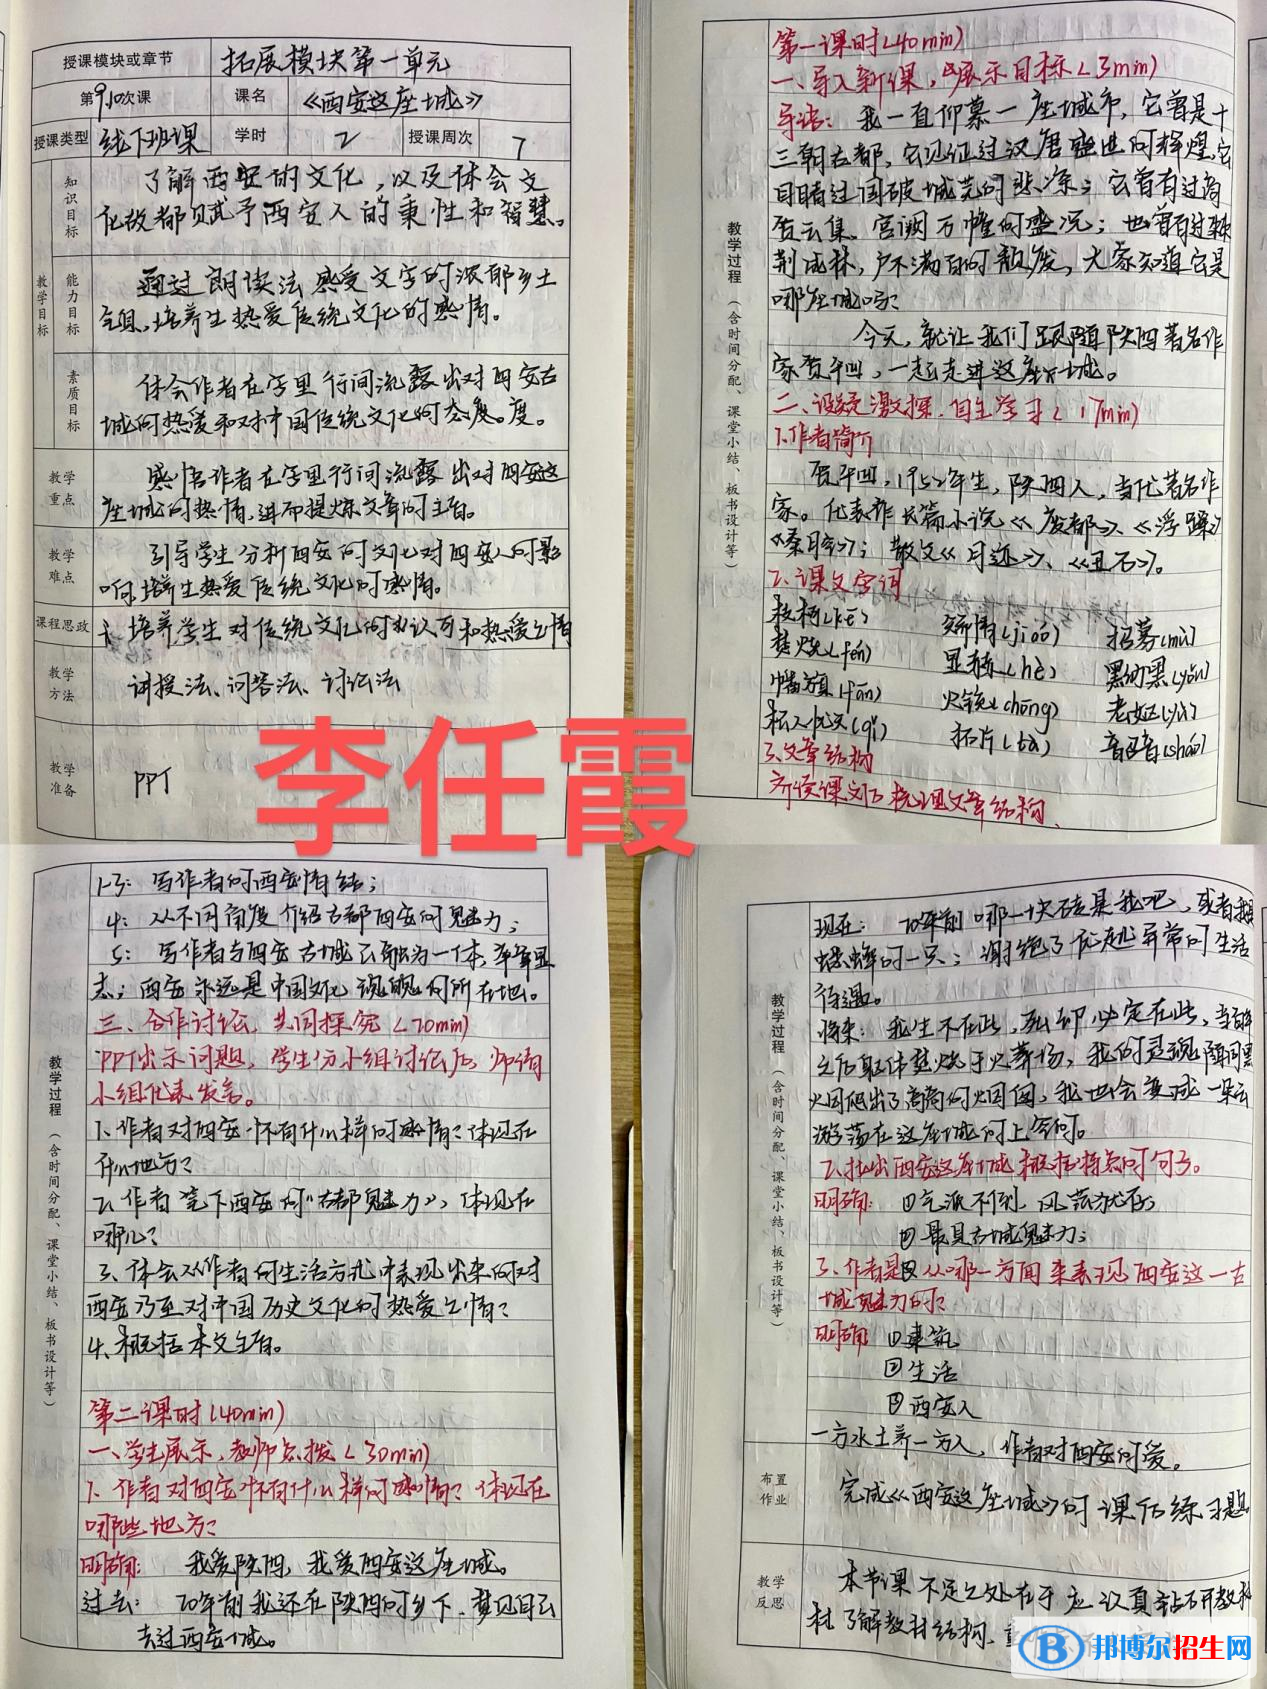 授课模块或章节 拓展模块第一单元
第9.10次课 课名 《西安这座城》
授课类型 线下班课 学时 2 授课周次 7
教学目标
知识目标
了解西安的文化，以及体会文
化故都赋予西安人的秉性和智慧。
能力目标
通过朗读法感受文字的浓郁乡土
气息，培养生热爱传统文化的感情。
素质目标
体会作者在字里行间流露出对西安古
城的热爱和对中国传统文化的态度。度。
教学重点
感悟作者在字里行间流露出对西安这
座城的热情，进而提炼文章的主旨。
教学难点
引导学生分析西安的文化对西安人的影
响，培养生热爱传统文化的感情。
课程思政
培养学生对传统文化的认可和热爱之情
教学方法
讲授法、问答法、讨论法
教学准备
PPT
李任霞
教学过程（含时间分配、课堂小结、板书设计等）
第一课时(40min)
一、导入新课，展示目标(3min)
导语：我一直仰慕一座城市，它曾是十
三朝古都，它见证过汉唐盛世的辉煌，它
目睹过国破城荒的悲凉；它曾有过商
贾云集、宫阙万幢的盛况；也曾有过荆棘
荆成林，户不满百的颓废，大家知道它是
哪座城吗？
今天，就让我们跟随陕西著名作
家贾平凹，一起走进这座城。
二、设疑激探，自主学习(17min)
1.作者简介
贾平凹，1952年生，陕西人，当代著名作
家。代表作长篇小说《废都》、《浮躁》
《秦腔》；散文《月迹》、《丑石》。
2、课文字词
枝柯(kē) 矫情(jiáo) 招募(mù)
焚烧(fén) 显赫(hè) 黑黝黝(yǒu)
幡旗(fān) 火铳(chòng) 老妪(yù)
杞人忧天(qǐ) 拓片(tà) 韶音(sháo)
3、文章结构
齐读课文后梳理文章结构.
教学过程（含时间分配、课堂小结、板书设计等）
1-3：写作者的西安情结；
4：从不同角度介绍古都西安的魅力；
5：写作者与西安古城已融为一体，卒章显
志；西安永远是中国文化魂魄的所在地。
三、合作讨论，共同探究(20min)
PPT出示问题，学生分小组讨论后，师请
小组代表发言。
1、作者对西安怀有什么样的感情？体现在
什么地方？
2、作者笔下西安的“古都魅力”，体现在
哪儿？
3、体会从作者的生活方式中表现出来的对
西安乃至对中国历史文化的热爱之情？
4、概括本文主旨。
第二课时(40min)
一、学生展示，教师点拨(30min)
1、作者对西安怀有什么样的感情？体现在
哪些地方？
明确：我爱陕西，我爱西安这座城。
过去：20年前我还在陕西的乡下，梦见自己
去过西安城。
教学过程（含时间分配、课堂小结、板书设计等）
现在：20年前哪一块砖是我吧，或者我是
蟋蟀的一只；谢绝了优越异常的生活
待遇。
将来：我生不在此，死却必定在此，当百年
之后躯体焚烧于火葬场，我的灵魂随同黑
烟爬出了高高的烟囱，我也会变成一朵云
游荡在这座城的上空的。
2、找出西安这座城概括特点的句子。
明确：①气派不倒，风范犹存；
②最具古城魅力；
3、作者是从哪一方面来表现西安这一古
城魅力的？
明确：①建筑
②生活
③西安人
一方水土养一方人，作者对西安的爱。
布置作业
完成《西安这座城》的课后练习题
教学反思
本节课不足之处在于应认真钻研教
材了解教材结构、
邦博尔招生网